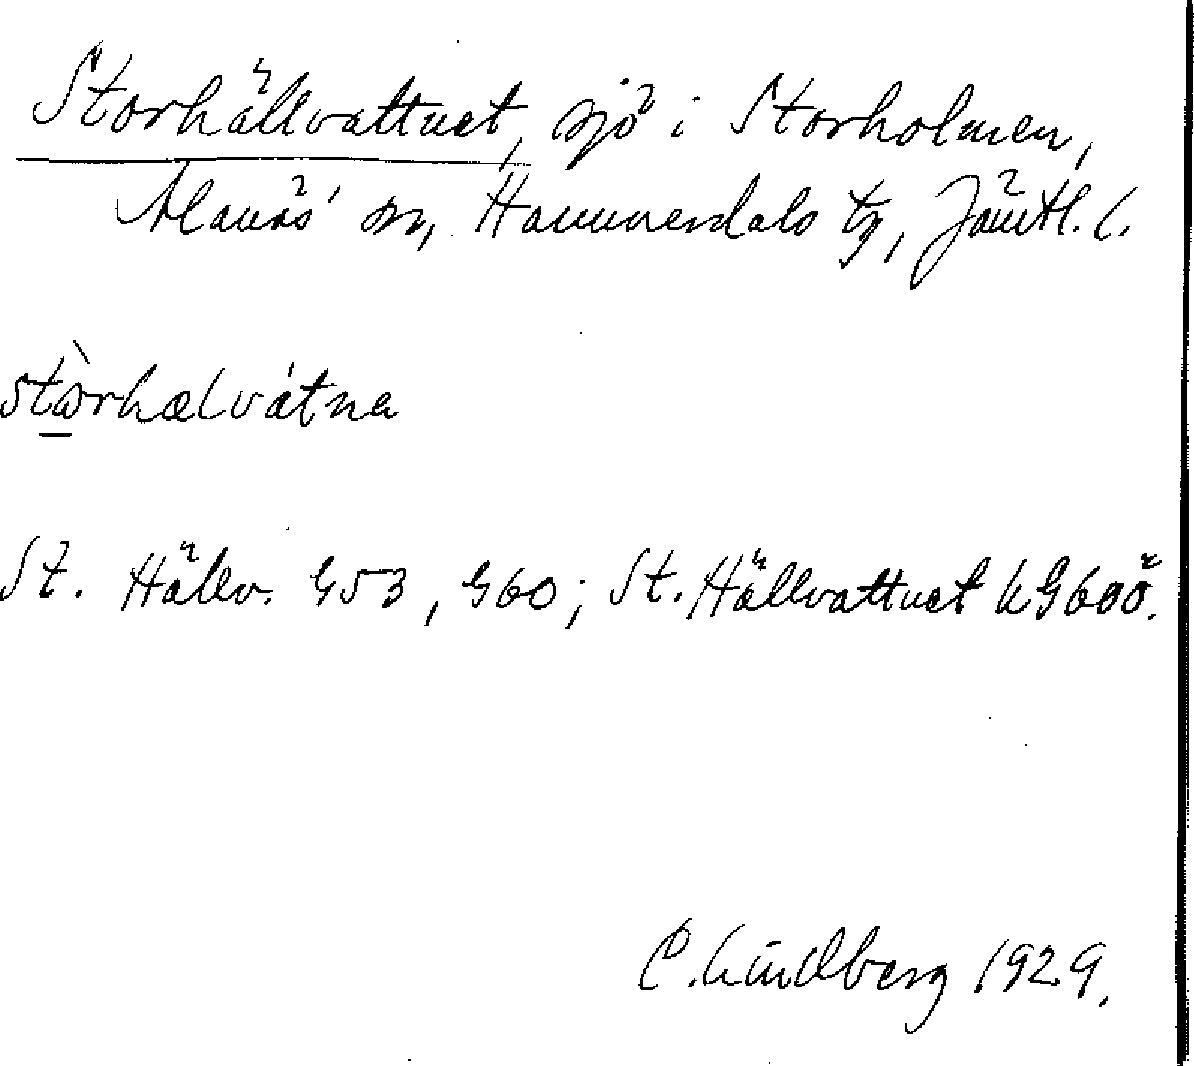 Storhällvattnet, sjö i Storholmen,
Alanäs sn, Hammerdals tg, Jämtl. l.
stòrhælvátna
St. Hällv. G53, G60; St. Hällvattnet hG60ö.
C. Lindberg 1929.